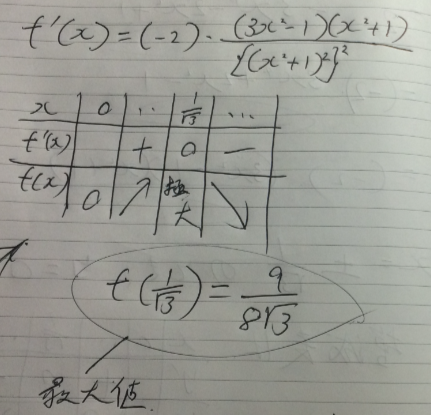 f'(x) = (-2) · (3x²-1)(x²+1) / {(x²+1)²}²
x 0 ‥ 1/√3 …
f'(x) + 0 −
f(x) 0 ↗ 極大 ↘
f(1/√3) = 9/8√3
最大値